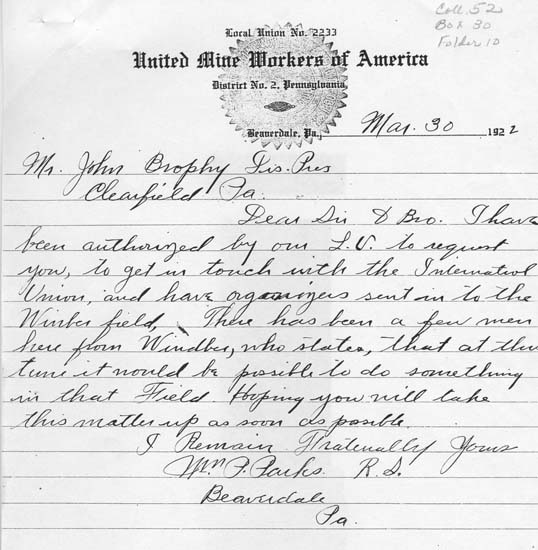 Coll. 52
Box 30
Folder 10
Local Union No. 2233
United Mine Workers of America
District No. 2, Pennsylvania
Beaverdale, Pa., Mar. 30 1922
Mr. John Brophy Dis. Pres
Clearfield Pa.
Dear Sir & Bro. I have
been authorized by our L.U. to request
you, to get in touch with the
Union, and have organizers sent in to the
Winber field, There has been a few men
here from Windber, who states, that at this
time it would be possible to do something
in that Field. Hoping you will take
this matter up as soon as possible.
I Remain Fraternally Yours
Wm P. Parks R.S.
Beaverdale
Pa.